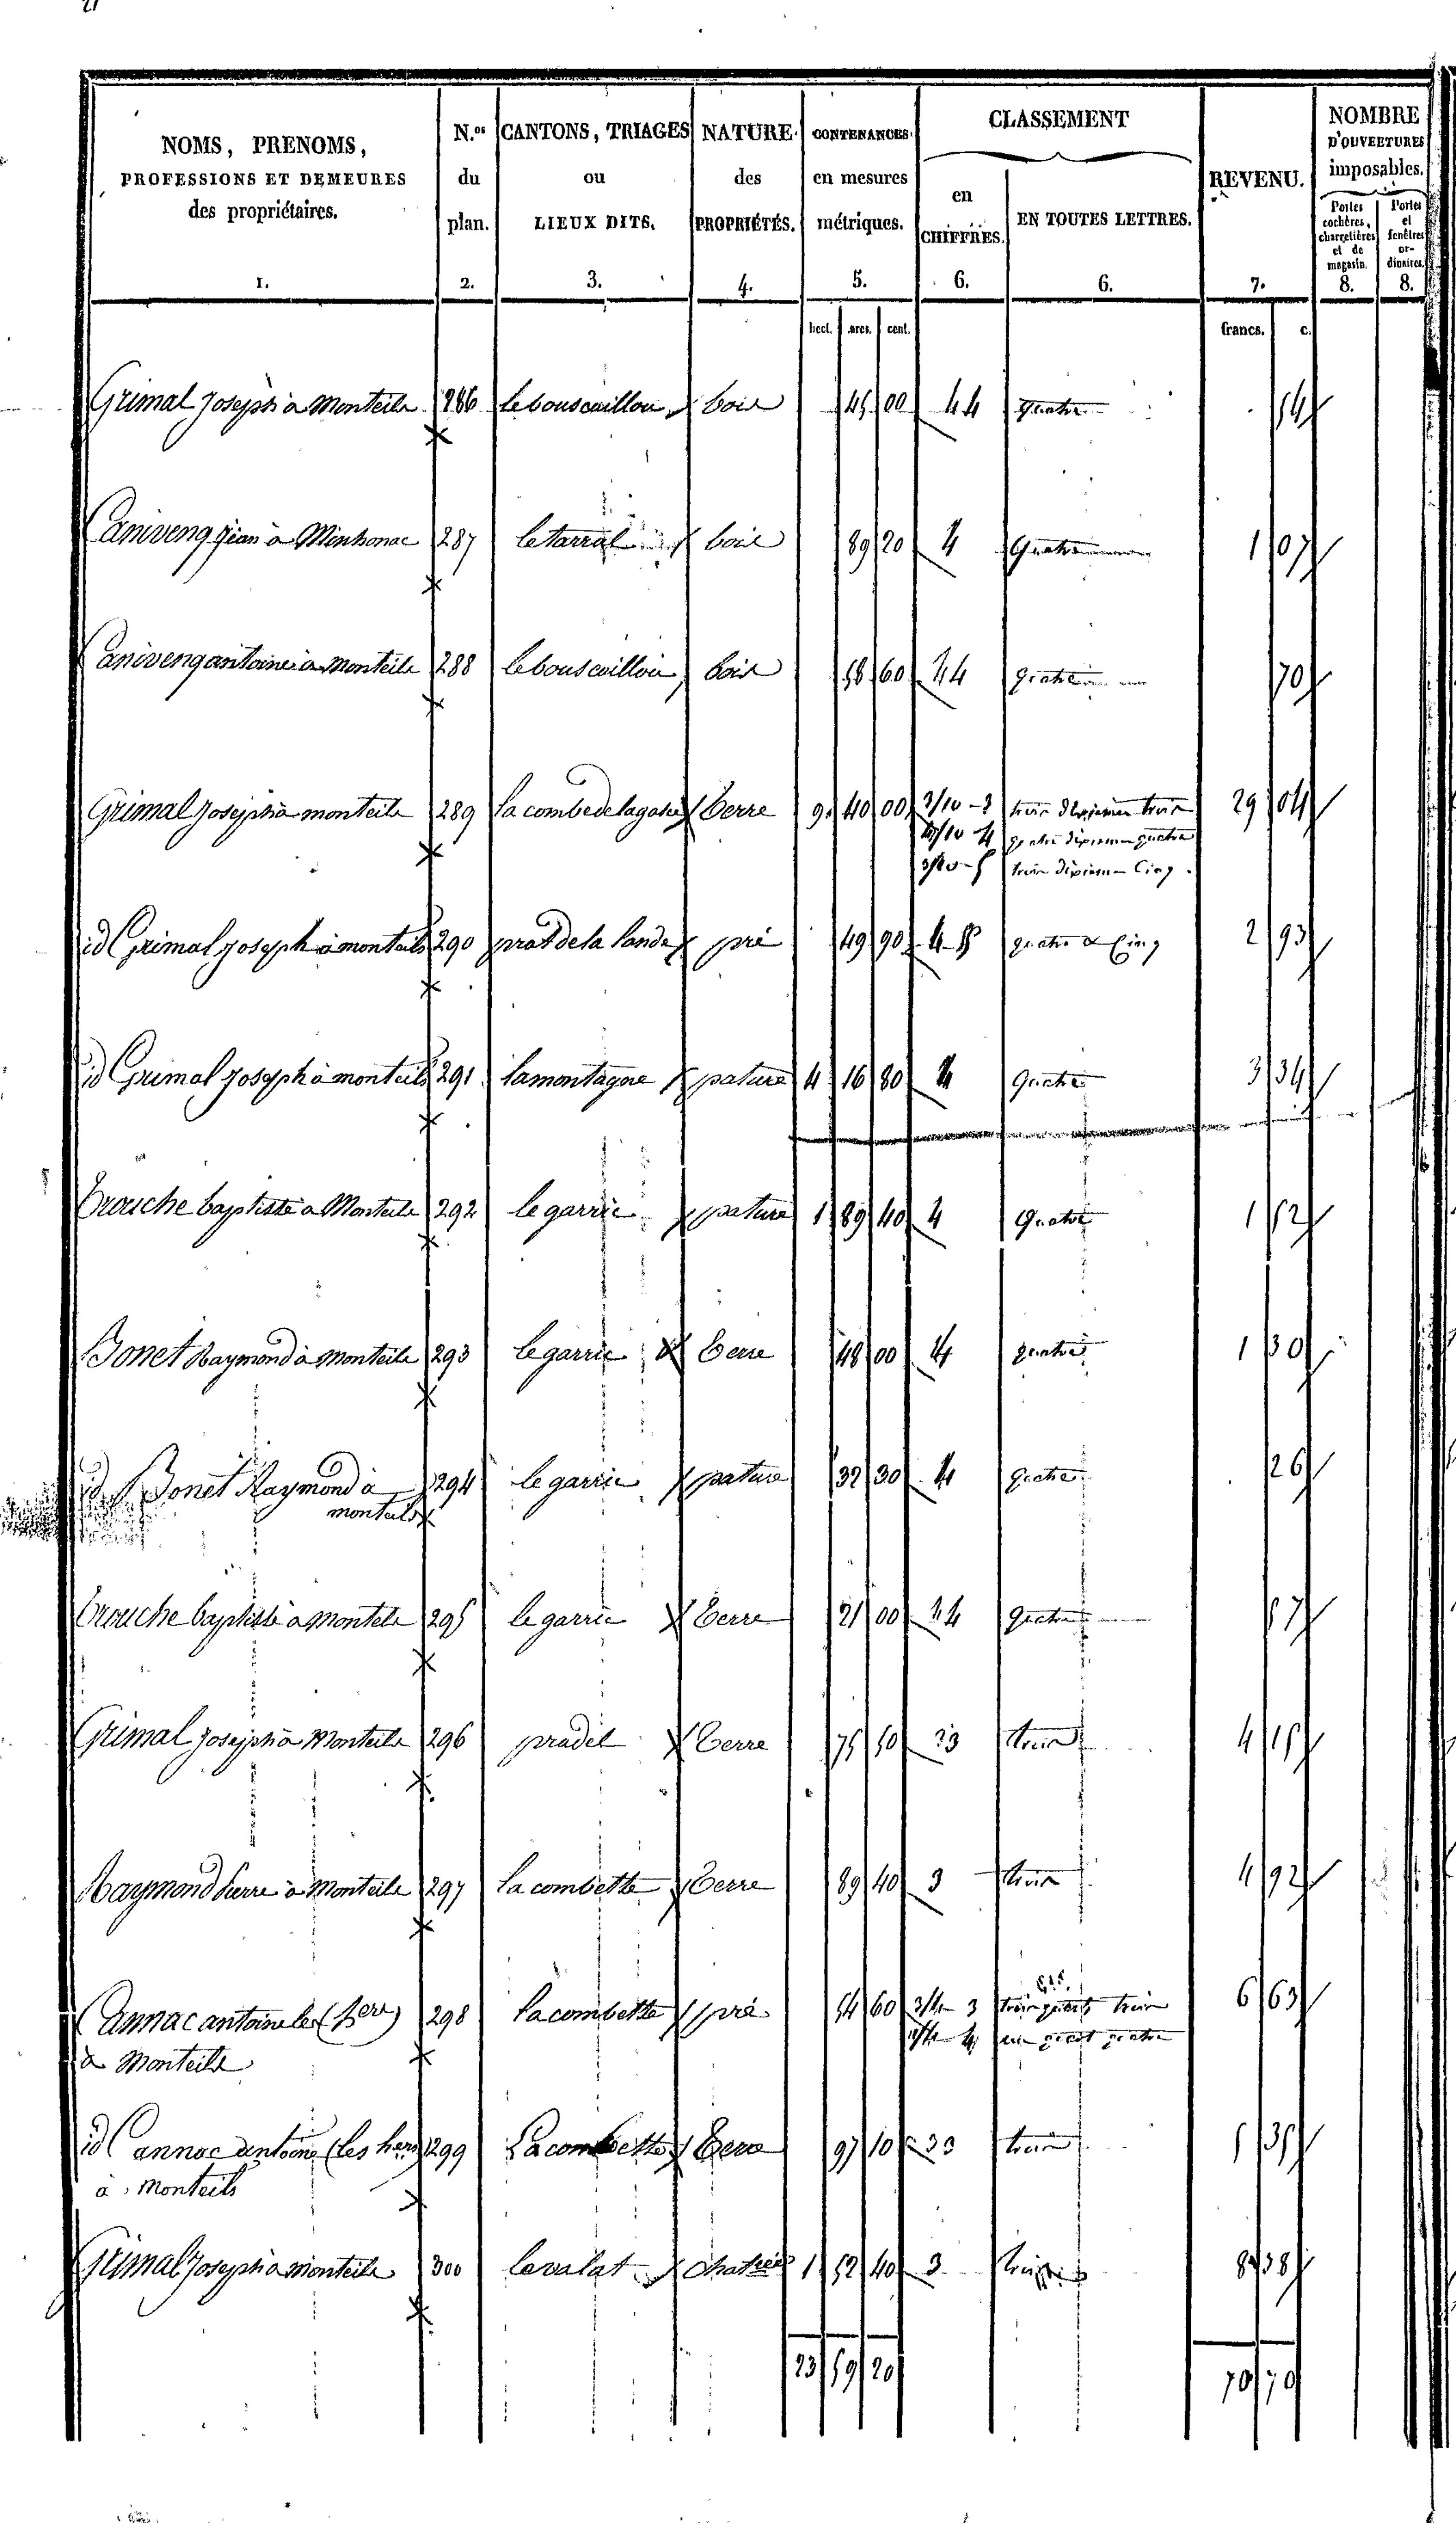 NOMS, PRENOMS, PROFESSIONS ET DEMEURES des propriétaires. 1. | N.os du plan. 2. | CANTONS, TRIAGES ou LIEUX DITS. 3. | NATURE des PROPRIÉTÉS. 4. | CONTENANCES en mesures métriques. 5. | CLASSEMENT en CHIFFRES. 6. | EN TOUTES LETTRES. 6. | REVENU. 7. | NOMBRE D'OUVERTURES imposables. Portes cochères, charretières et de magasin. 8. | Portes et fenêtres ordinaires. 8.
hect. ares. cent. francs. c.
Grimal Joseph à Monteils 286 le bouscaillou bois 45 00 4 quatre 54
Caniveng Jean à Minhonac 287 le tarral bois 89 20 4 quatre 1 07
Caniveng antoine à monteils 288 le bouscaillou bois 58 60 4 quatre 70
Grimal Joseph à monteils 289 la combe de la terre 9 40 00 3/10 - 3 trois dixièmes trois 29 04
4/10 4 quatre dixièmes quatre
3/10 - 5 trois dixièmes Cinq
id Grimal Joseph à monteils 290 prat de la lande pré 49 90 4 5 quatre & Cinq 2 93
id Grimal Joseph à monteils 291 la montagne pature 4 16 80 4 quatre 3 34
trouche baptiste à Monteils 292 le garric pature 1 89 40 4 quatre 1 52
Bonet Raymond à Monteils 293 le garric terre 48 00 4 quatre 1 30
id Bonet Raymond à 294 le garric pature 32 30 4 quatre 26
monteils
trouche baptiste à monteils 295 le garric terre 21 00 4 quatre 57
Grimal Joseph à Monteils 296 pradel terre 75 50 3 trois 4 15
Raymond Pierre à Monteils 297 la combette terre 89 40 3 trois 4 92
Cannac antoine les (hers) 298 la combette pré 54 60 3/4 3 trois quarts trois 6 63
à Monteils 1/4 4 un quart quatre
id Cannac antoine (les hers) 299 La combette terre 97 10 3 trois 5 35
à Monteils
Grimal Joseph à monteils 300 le valat 1 52 40 3 trois 8 38
23 59 20 70 70